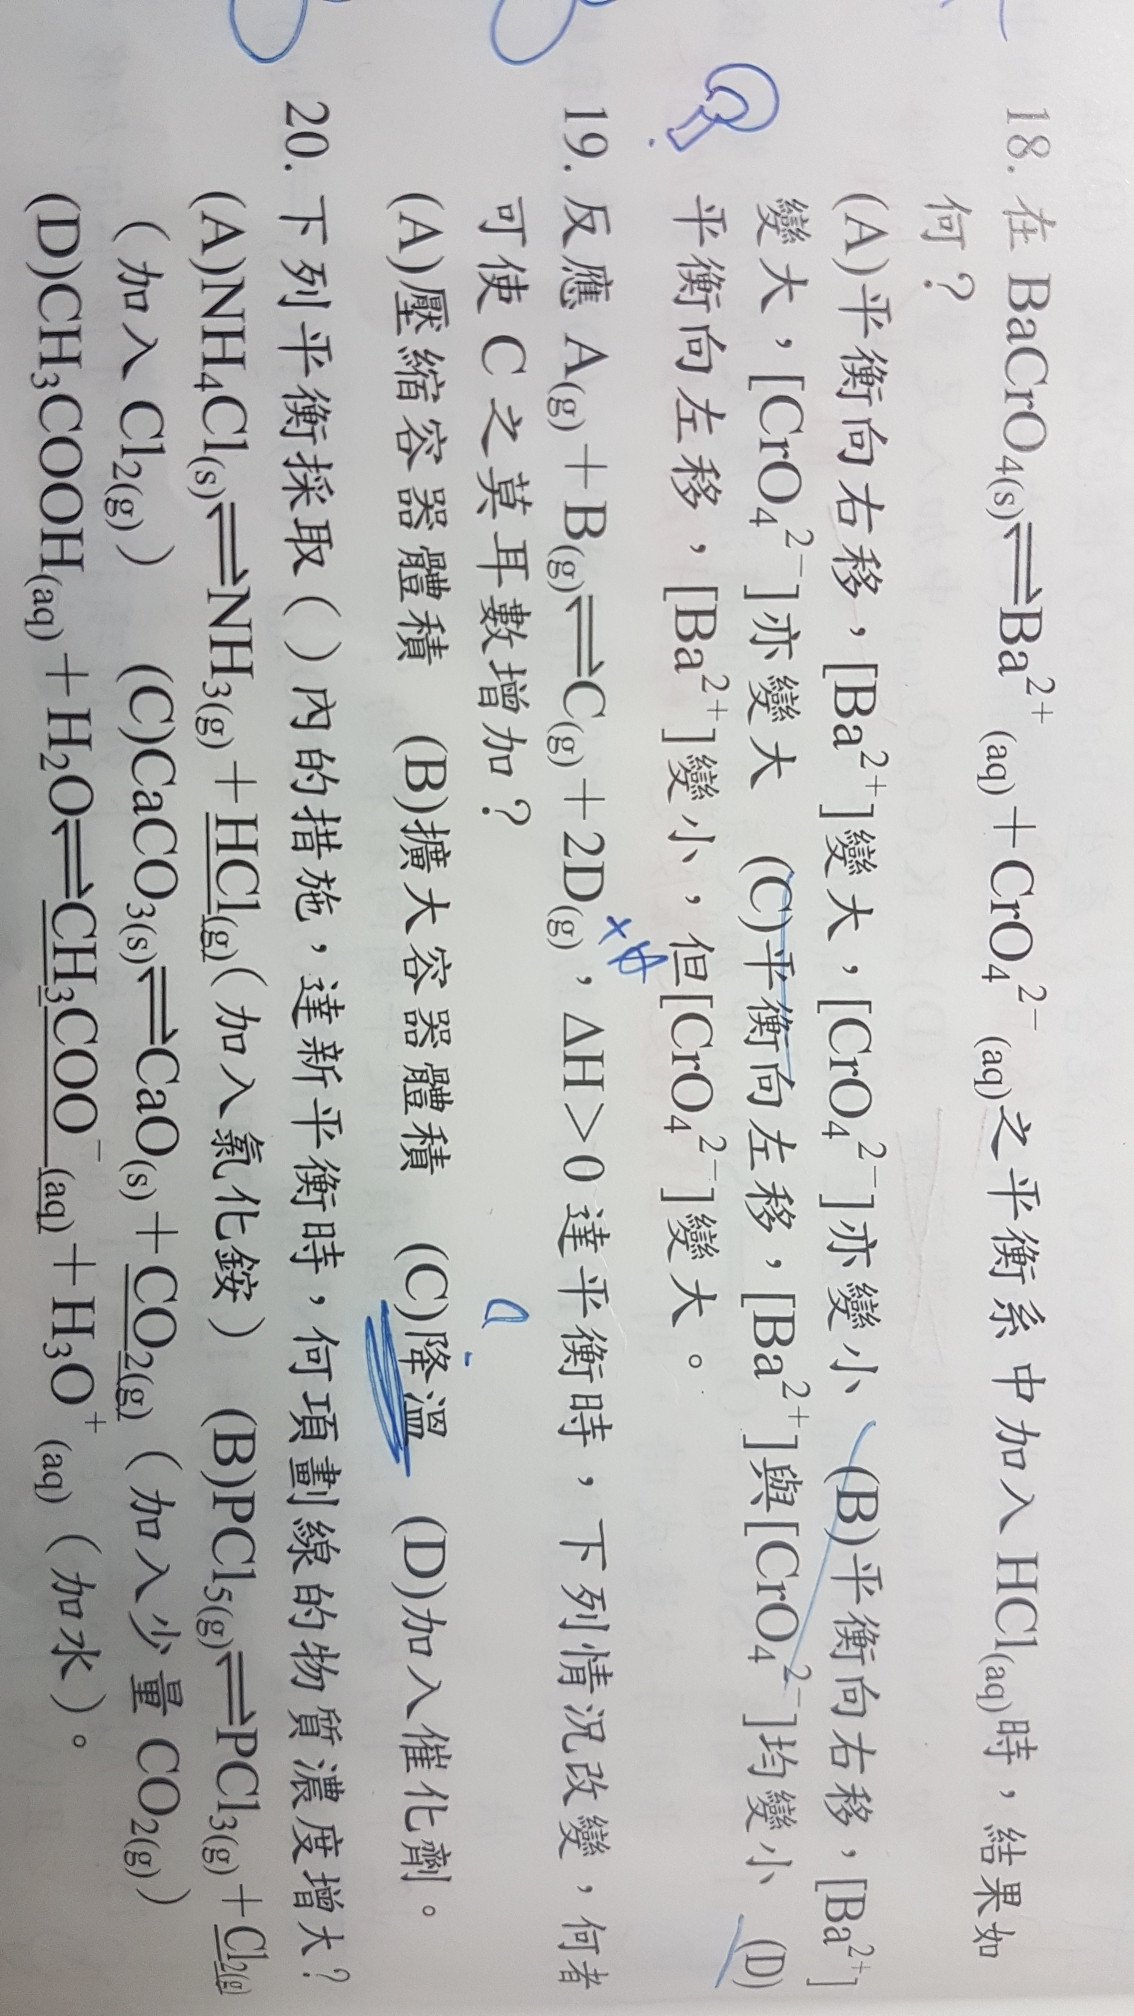 18. 在 BaCrO₄₍ₛ₎⇌Ba²⁺(aq)＋CrO₄²⁻(aq)之平衡系中加入 HCl(aq)時，結果如
何？
(A)平衡向右移，[Ba²⁺]變大，[CrO₄²⁻]亦變小 (B)平衡向右移，[Ba²⁺]
變大，[CrO₄²⁻]亦變大 (C)平衡向左移，[Ba²⁺]與[CrO₄²⁻]均變小 (D)
平衡向左移，[Ba²⁺]變小，但[CrO₄²⁻]變大。
19. 反應 A(g)＋B(g)⇌C(g)＋2D(g)，ΔH＞0 達平衡時，下列情況改變，何者
可使 C 之莫耳數增加？
(A)壓縮容器體積 (B)擴大容器體積 (C)降溫 (D)加入催化劑。
20. 下列平衡採取（）內的措施，達新平衡時，何項劃線的物質濃度增大？
(A)NH₄Cl(s)⇌NH₃(g)＋HCl(g)（加入氯化銨） (B)PCl₅(g)⇌PCl₃(g)＋Cl₂(g)
（加入 Cl₂(g)） (C)CaCO₃(s)⇌CaO(s)＋CO₂(g)（加入少量 CO₂(g)）
(D)CH₃COOH(aq)＋H₂O⇌CH₃COO⁻(aq)＋H₃O⁺(aq)（加水）。